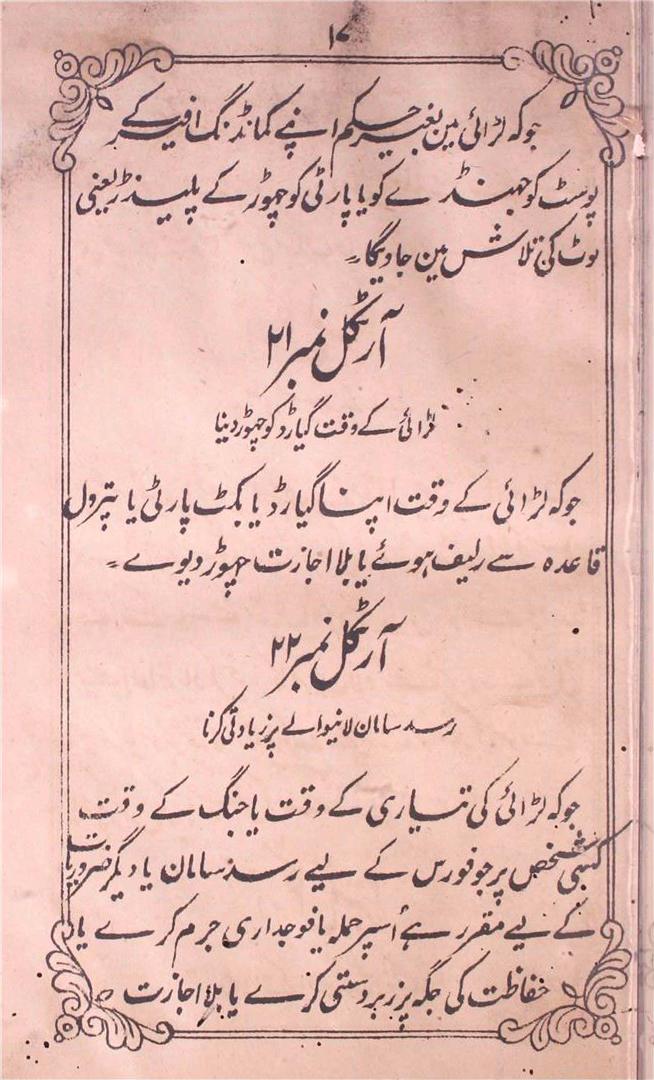 ۱۷
جو کہ لڑائی مین بغیر حکم اپنے کمانڈنگ افیسر کے
پوسٹ کو جھنڈے کو یا پارٹی کو چھوڑ کے پلینڈر یعنی
لوٹ کی تلاش مین جاویگا۔
آرٹکل نمبر ۲۱
لڑائی کے وقت گیارڈ کو چھوڑ دینا
جو کہ لڑائی کے وقت اپنا گیارڈ یا پکٹ پارٹی یا پترول
قاعدہ سے رلیف ہوئے یا بلا اجازت چھوڑ دیوے۔
آرٹکل نمبر ۲۲
رسد سامان لانیوالے پر زیادتی کرنا
جو کہ لڑائی کی تیاری کے وقت یا جنگ کے وقت
کسی شخص پر جو فورس کے لیے رسد سامان یا دیگر ضروریات
کے لیے مقرر ہے اُسپر حملہ یا فوجداری جرم کرے یا
حفاظت کی جگہ پر زبردستی کرے یا بلا اجازت